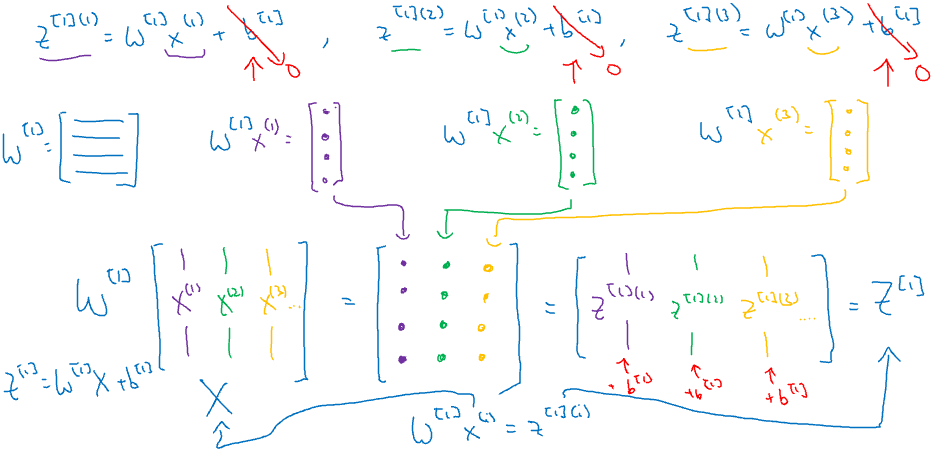 z^{[1](1)} = W^{[1]} x^{(1)} + b^{[1]} , z^{[1](2)} = W^{[1]} x^{(2)} + b^{[1]} , z^{[1](3)} = W^{[1]} x^{(3)} + b^{[1]}
0 0 0
W^{[1]} = [ ] W^{[1]} x^{(1)} = [ ] W^{[1]} x^{(2)} = [ ] W^{[1]} x^{(3)} = [ ]
W^{[1]} [ x^{(1)} x^{(2)} x^{(3)} ... ] = [ ] = [ z^{[1](1)} z^{[1](2)} z^{[1](3)} .... ] = Z^{[1]}
+ b^{[1]} + b^{[1]} + b^{[1]}
Z^{[1]} = W^{[1]} X + b^{[1]}
X
W^{[1]} x^{(i)} = z^{[1](i)}